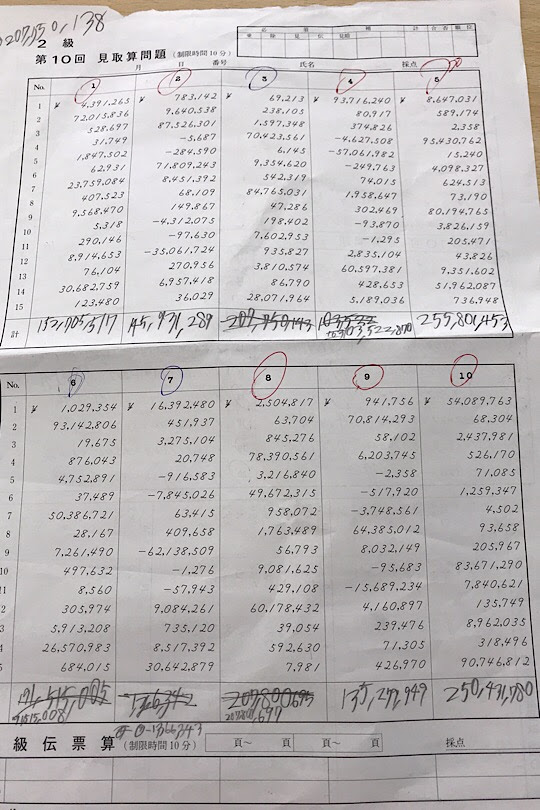 207,750,138
2 級
第10回 見取算問題 (制限時間10分)
月 日 番号 氏名 採点
No. 1 2 3 4 5
1 ¥ 4,391,265 ¥ 783,142 ¥ 69,213 ¥ 93,716,240 ¥ 8,647,031
2 72,015,836 9,640,538 238,105 80,917 589,174
3 528,697 87,526,301 1,597,348 374,826 2,358
4 31,749 -5,687 70,423,561 -4,627,508 95,430,762
5 1,847,502 -284,590 6,145 -57,061,982 15,240
6 62,931 71,809,243 9,354,620 -249,763 4,098,327
7 23,759,084 8,451,392 542,319 74,015 624,513
8 407,523 68,109 84,765,031 1,958,647 73,190
9 9,568,470 149,867 47,286 302,469 80,194,765
10 5,318 -4,312,075 198,402 -93,870 3,826,159
11 290,146 -97,630 7,602,953 -1,295 205,471
12 8,914,653 -35,061,724 935,827 2,835,104 43,826
13 76,104 270,956 3,810,574 60,597,381 9,351,602
14 30,682,759 6,957,418 86,790 428,653 51,962,087
15 123,480 36,029 28,071,964 5,189,036 736,948
計 152,705,517 145,931,289 207,750,143 103,522,870 255,801,453
No. 6 7 8 9 10
1 ¥ 1,029,354 ¥ 16,392,480 ¥ 2,504,817 ¥ 941,756 ¥ 54,089,763
2 93,142,806 451,937 63,704 70,814,293 68,304
3 19,675 3,275,104 845,276 58,102 2,437,981
4 876,043 20,748 78,390,561 6,203,745 526,170
5 4,752,891 -916,583 3,216,840 -2,358 71,085
6 37,489 -7,845,026 49,672,315 -517,920 1,259,347
7 50,386,721 63,415 958,072 -3,748,561 4,502
8 28,167 409,658 1,763,489 64,385,012 93,658
9 7,261,490 -62,138,509 56,793 8,032,149 205,967
10 497,632 -1,276 9,081,625 -95,683 83,671,290
11 8,560 -57,943 429,108 -15,689,234 7,840,621
12 305,974 9,084,261 60,178,432 4,160,897 135,749
13 5,913,208 735,120 39,054 239,476 8,962,035
14 26,570,983 8,517,392 592,630 71,305 318,496
15 684,015 30,642,879 7,981 426,970 90,746,812
207,800,695 135,279,949 250,431,780
207,800,697
級 伝 票 算 (制限時間10分) 頁〜 頁 頁〜 頁 採点